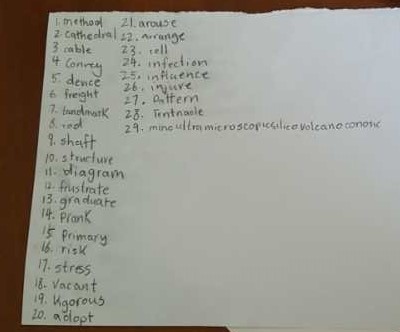 1. method
2. cathedral
3. cable
4. Convey
5. device
6. freight
7. landmark
8. rod
9. shaft
10. structure
11. diagram
12. frustrate
13. graduate
14. Prank
15. Primary
16. risk
17. stress
18. Vacant
19. Rigorous
20. adopt
21. arouse
22. arrange
23. cell
24. infection
25. influence
26. injure
27. Pattern
28.
29.